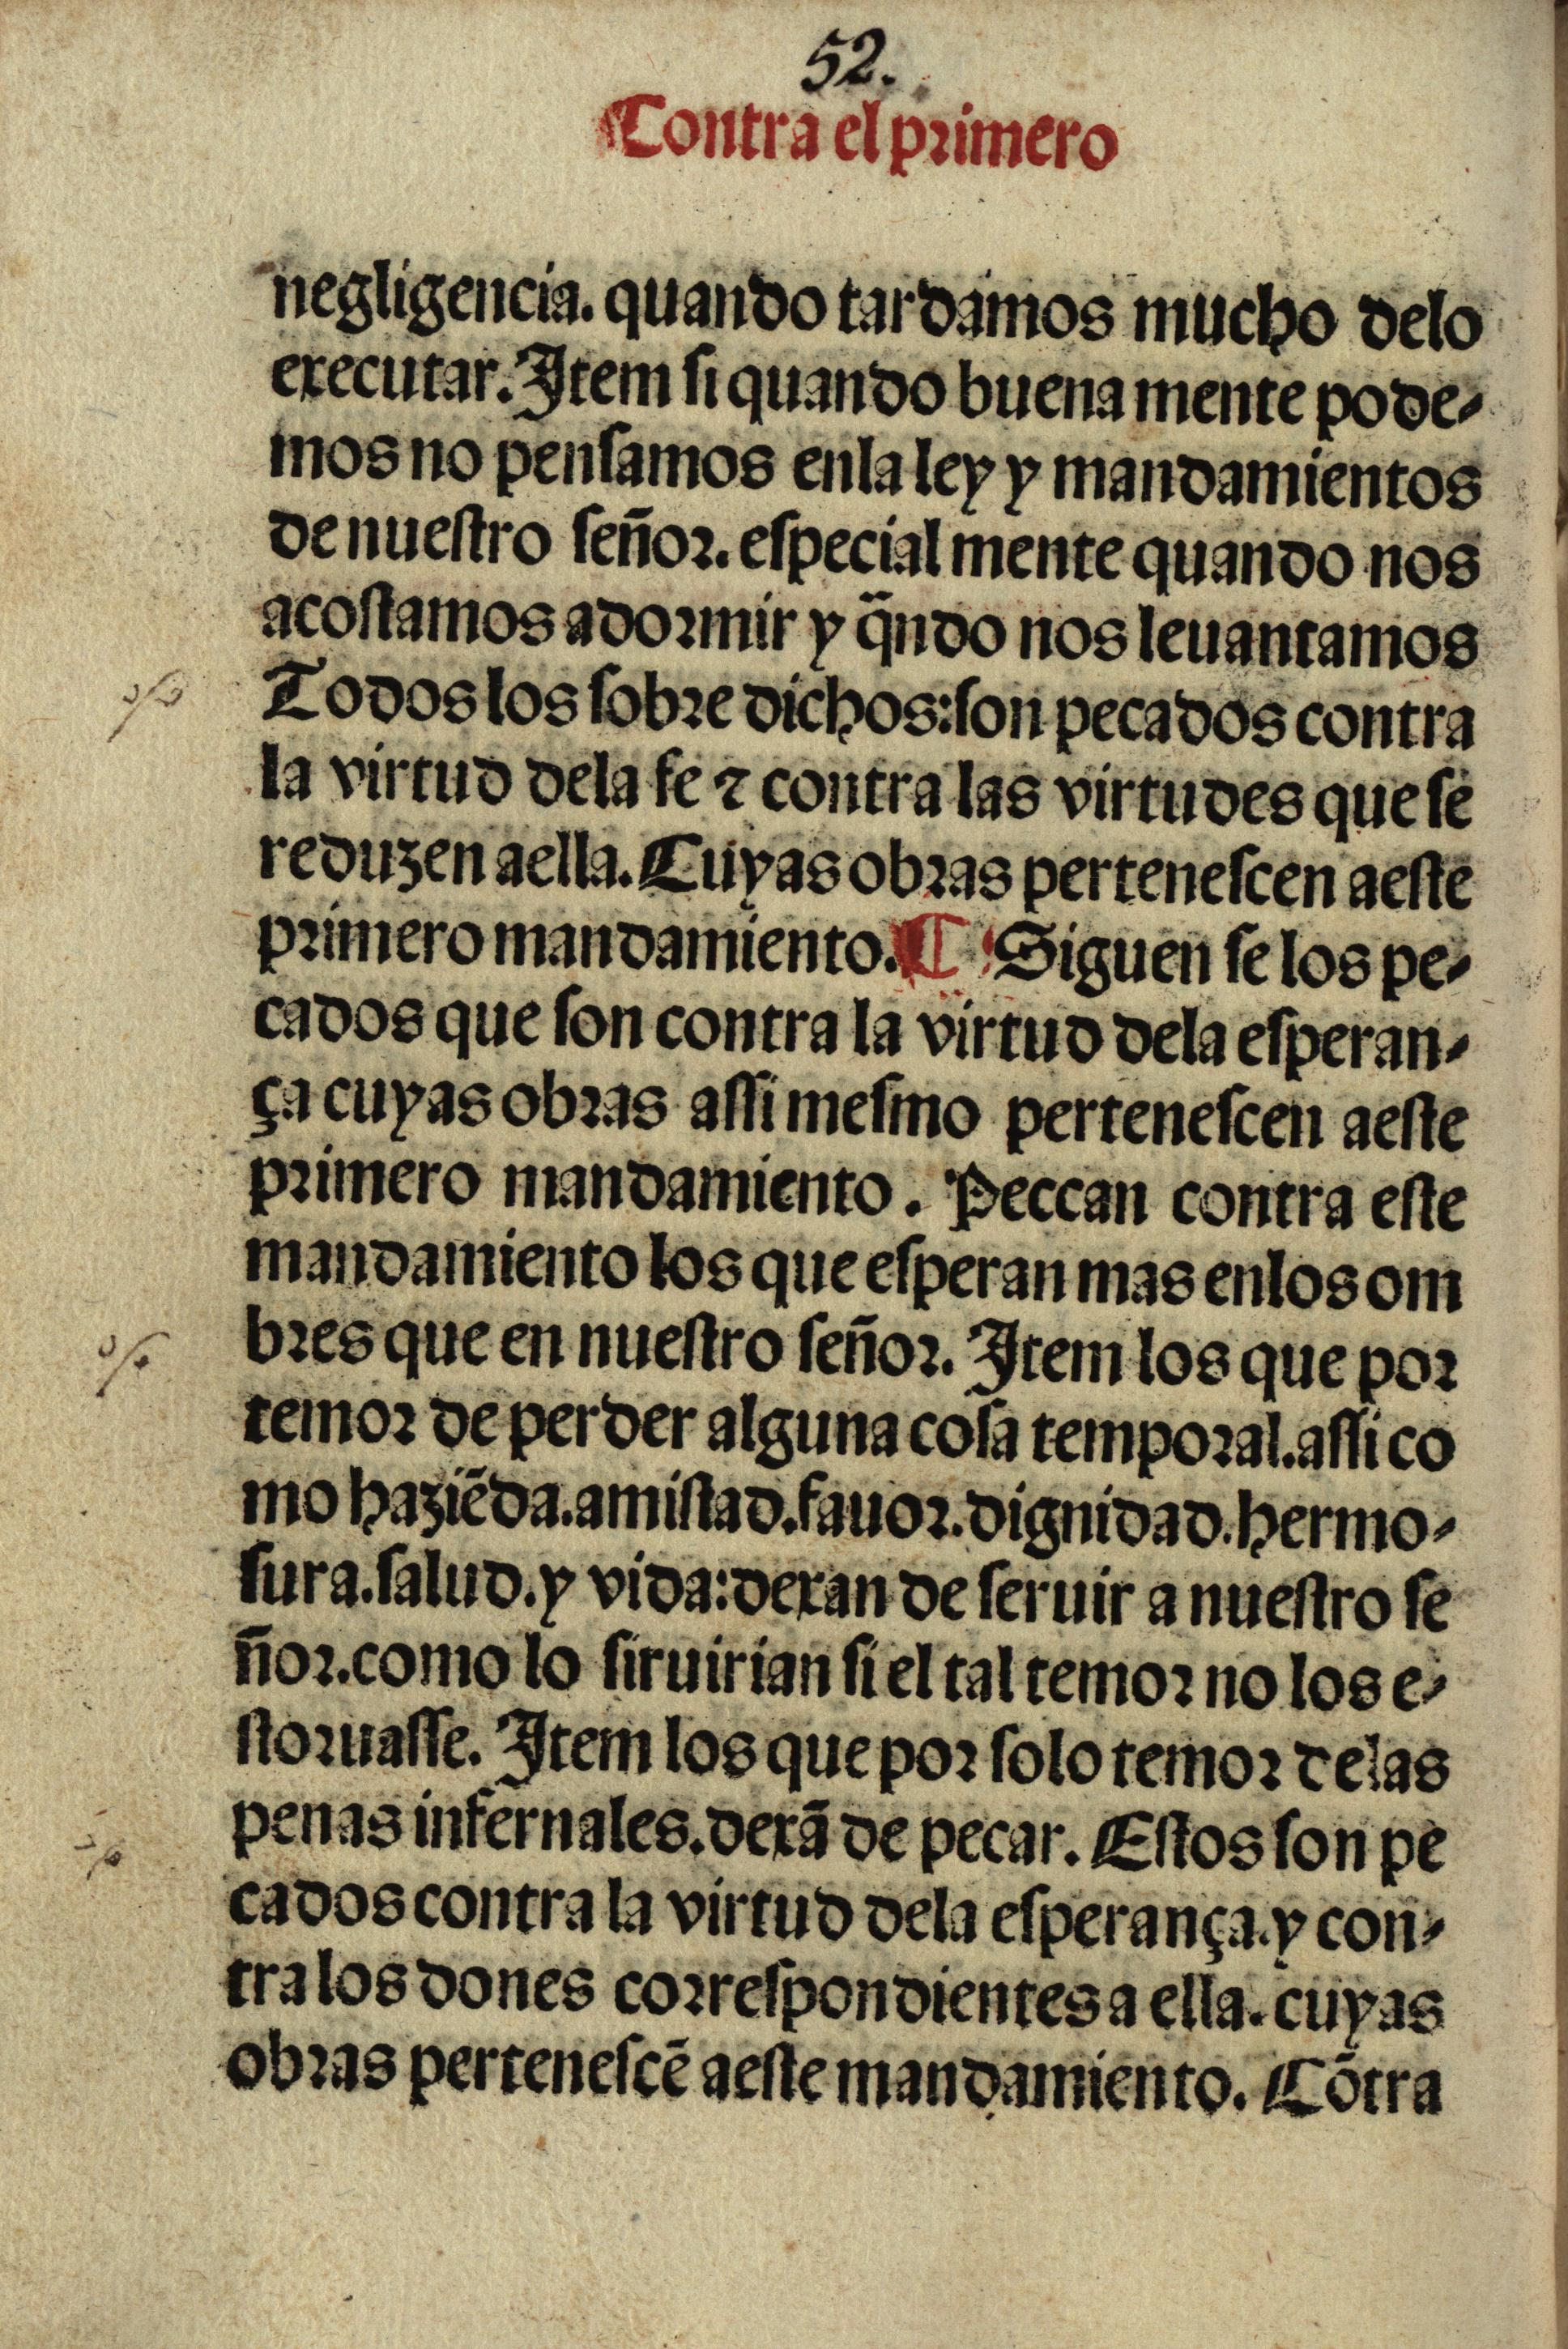 52.
Contra el primero
negligencia. quando tardamos mucho delo
executar. Item si quando buena mente pode-
mos no pensamos enla ley y mandamientos
de nuestro señor. especial mente quando nos
acostamos adormir y q̃ndo nos leuantamos
Todos los sobre dichos: son pecados contra
la virtud dela fe ⁊ contra las virtudes que se
reduzen aella. Cuyas obras pertenescen aeste
primero mandamiento. ¶ Siguen se los pe-
cados que son contra la virtud dela esperan-
ça cuyas obras assi mesmo pertenescen aeste
primero mandamiento. Peccan contra este
mandamiento los que esperan mas enlos om
bres que en nuestro señor. Item los que por
temor de perder alguna cosa temporal. assi co
mo haziẽda. amistad. fauor. dignidad. hermo-
sura. salud. y vida: dexan de seruir a nuestro se
ñor. como lo siruirian si el tal temor no los e-
storuasse. Item los que por solo temor delas
penas infernales. dexã de pecar. Estos son pe
cados contra la virtud dela esperança. y con-
tra los dones correspondientes a ella. cuyas
obras pertenescẽ aeste mandamiento. Cõtra